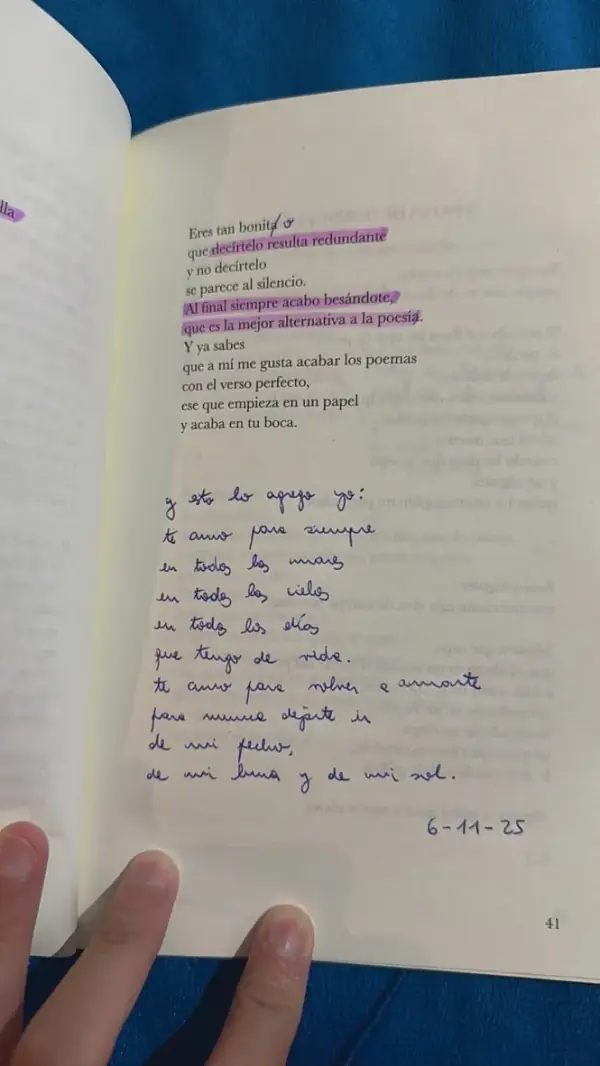 lla
Eres tan bonita o
que decírtelo resulta redundante
y no decírtelo
se parece al silencio.
Al final siempre acabo besándote,
que es la mejor alternativa a la poesía.
Y ya sabes
que a mí me gusta acabar los poemas
con el verso perfecto,
ese que empieza en un papel
y acaba en tu boca.
y esto lo agrego yo:
te amo para siempre
en todos los mares
en todos los cielos
en todos los días
que tengo de vida.
te amo para volver a amarte
para nunca dejarte ir
de mi pecho,
de mi luna y de mi sol.
6-11-25
41